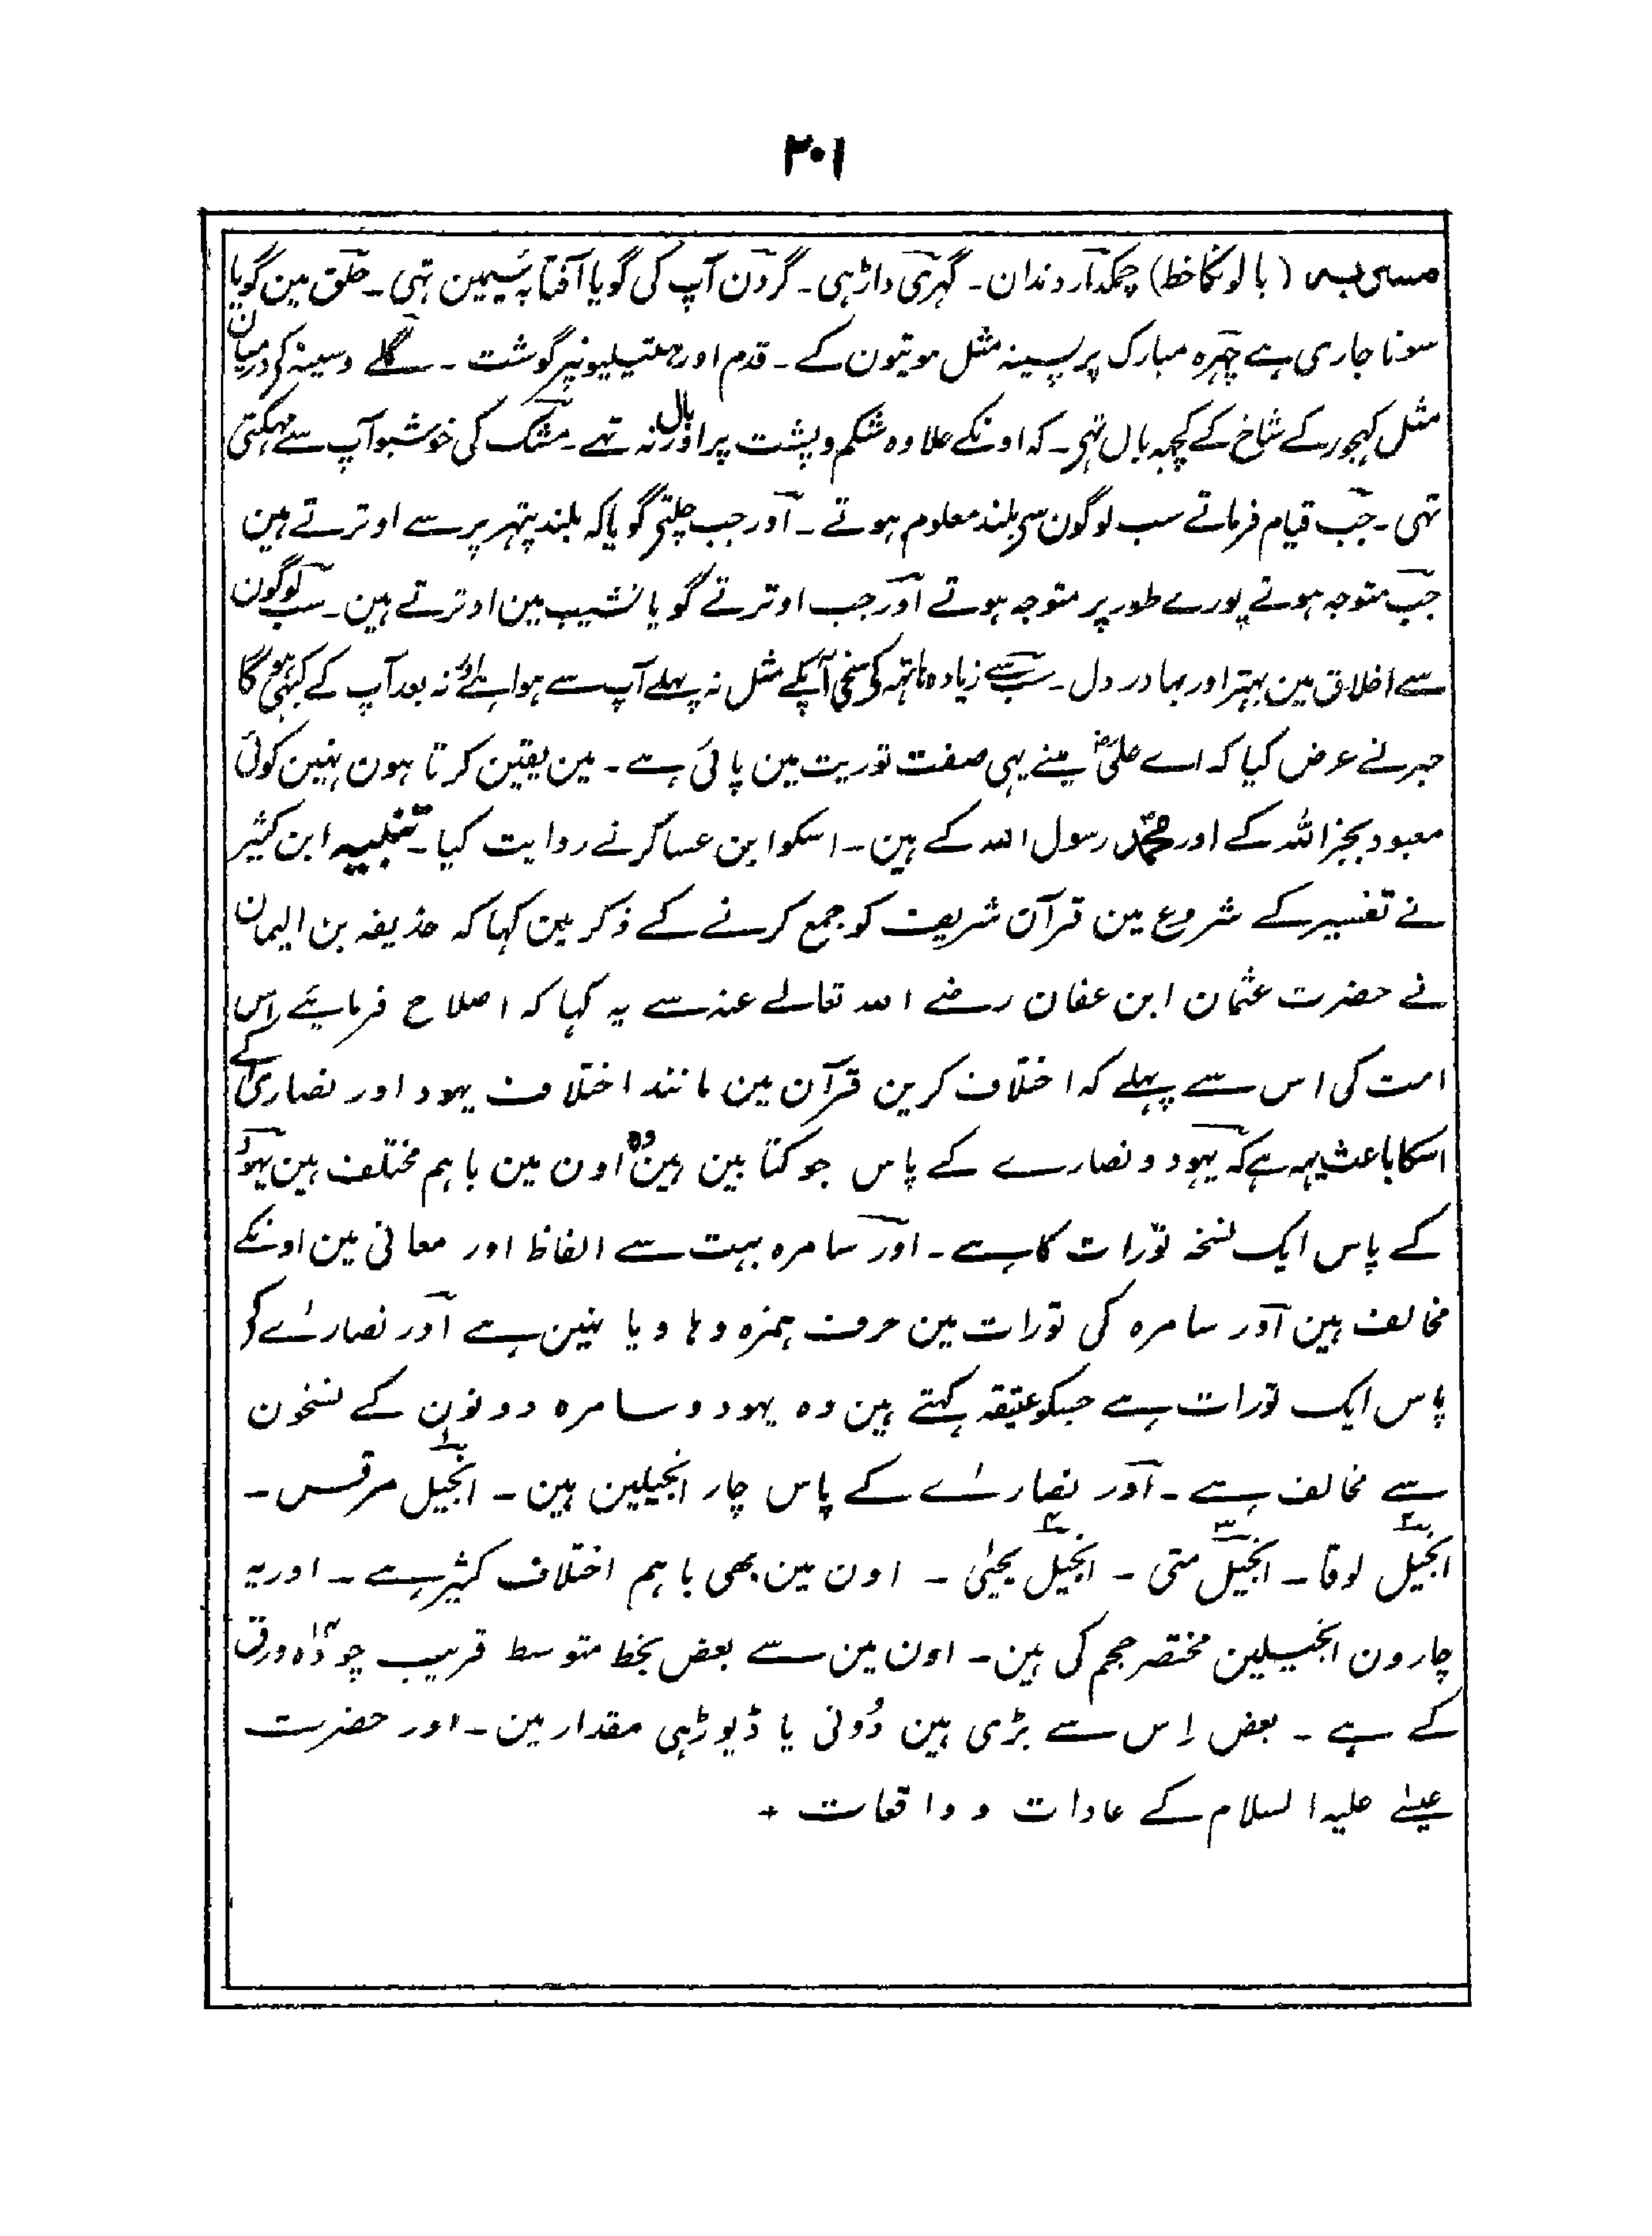 ۲۰۱
مسربہ (بالونکا خط) چمکدار دندان۔ گہری داڑہی۔ گردن آپ کی گویا آفتابہ سیمین تہی۔ حلق مین گویا
سونا جاری ہے چہرہ مبارک پر پسینہ مثل موتیون کے۔ قدم اور ہتیلیونپر گوشت۔ گلے وسینہ کے درمیان
مثل کہجور کے شاخ کے کچہہ بال تہی۔ کہ اونکے علاوہ شکم و پشت پر اور بال نہ تہے۔ مشک کی خوشبو آپ سے مہکتی
تہی۔ جب قیام فرماتے سب لوگون سے بلند معلوم ہوتے۔ اور جب چلتے گویا کہ بلند پتہر پر سے اوترتے ہین
جب متوجہ ہوتے پورے طور پر متوجہ ہوتے اور جب اوترتے گویا نشیب مین اوترتے ہین۔ سب لوگون
سے اخلاق مین بہتر اور بہادر دل۔ سب سے زیادہ ہاتہہ کے سخی آپکے مثل نہ پہلے آپ سے ہوا ہے اور نہ بعد آپ کے کبہی ہو گا
حبر نے عرض کیا کہ اے علیؓ مینے یہی صفت توریت مین پائی ہے۔ مین یقین کرتا ہون نہین کوئی
معبود بجز اللہ کے اور محمدؐ رسول اللہ کے ہین۔ اسکو ابن عساکر نے روایت کیا۔ تنبیہ ابن کثیر
نے تفسیر کے شروع مین قرآن شریف کو جمع کرنے کے ذکر مین کہا کہ حذیفہ بن الیمان
نے حضرت عثمان ابن عفان رضے اللہ تعالے عنہ سے یہ کہا کہ اصلاح فرمایئے اس
امت کی اس سے پہلے کہ اختلاف کرین قرآن مین مانند اختلاف یہود اور نصاریٰ کے
اسکا باعث یہہ ہے کہ یہود و نصارے کے پاس جو کتابین ہین وہ اون مین باہم مختلف ہین یہود
کے پاس ایک نسخہ تورات کا ہے۔ اور سامرہ بہت سے الفاظ اور معانی مین اونکے
مخالف ہین اور سامرہ کی تورات مین حرف ہمزہ و ہا و یا نہین ہے اور نصارےٰ کے
پاس ایک تورات ہے جسکو عتیقہ کہتے ہین وہ یہود و سامرہ دونون کے نسخون
سے مخالف ہے۔ اور نصارےٰ کے پاس چار انجیلین ہین۔ ۱ انجیل مرقس۔
۲ انجیل لوقا۔ ۳ انجیل متی۔ ۴ انجیل یحییٰ۔ اون مین بھی باہم اختلاف کثیر ہے۔ اور یہ
چارون انجیلین مختصر حجم کی ہین۔ اون مین سے بعض بخط متوسط قریب چودہ ۱۴ ورق
کے ہے۔ بعض اِس سے بڑی ہین دُونی یا ڈیوڑہی مقدار مین۔ اور حضرت
عیسےٰ علیہ السلام کے عادات و واقعات +